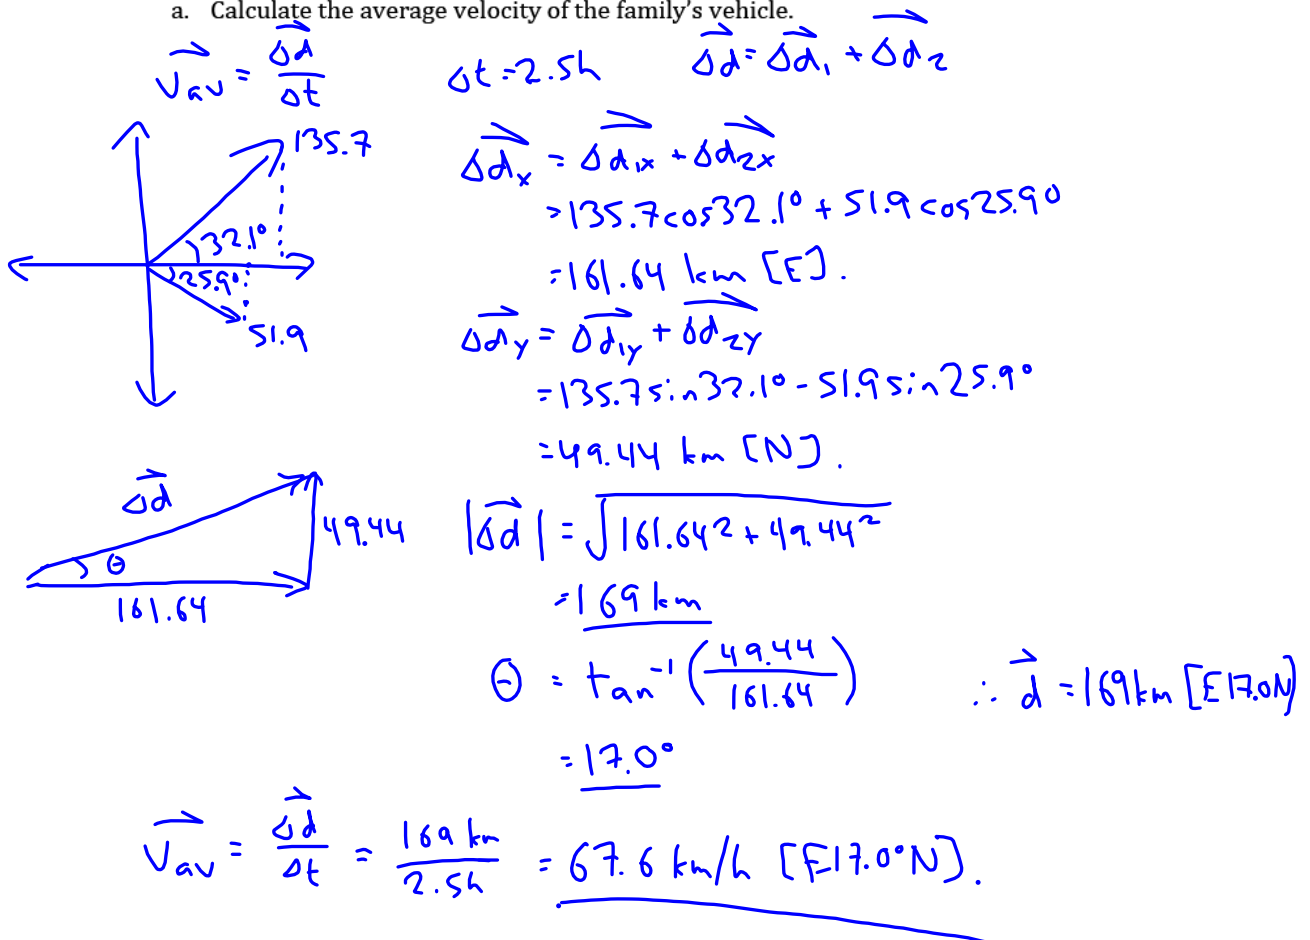 a. Calculate the average velocity of the family's vehicle.
v⃗av = Δd⃗/Δt
Δt = 2.5h
Δd⃗ = Δd⃗₁ + Δd⃗₂
135.7
32.1°
25.9°
51.9
Δd⃗x = Δd⃗1x + Δd⃗2x
= 135.7cos32.1° + 51.9cos25.9°
= 161.64 km [E].
Δd⃗y = Δd⃗1y + Δd⃗2y
= 135.7sin32.1° - 51.9sin25.9°
= 49.44 km [N].
Δd⃗
49.44
θ
161.64
|Δd⃗| = √161.64² + 49.44²
= 169 km
θ = tan⁻¹(49.44/161.64)
= 17.0°
∴ d⃗ = 169km [E17.0N]
v⃗av = Δd⃗/Δt = 169 km/2.5h = 67.6 km/h [E17.0°N].